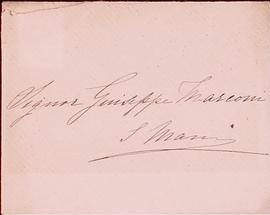 Signor Giuseppe Marconi
S. Mani